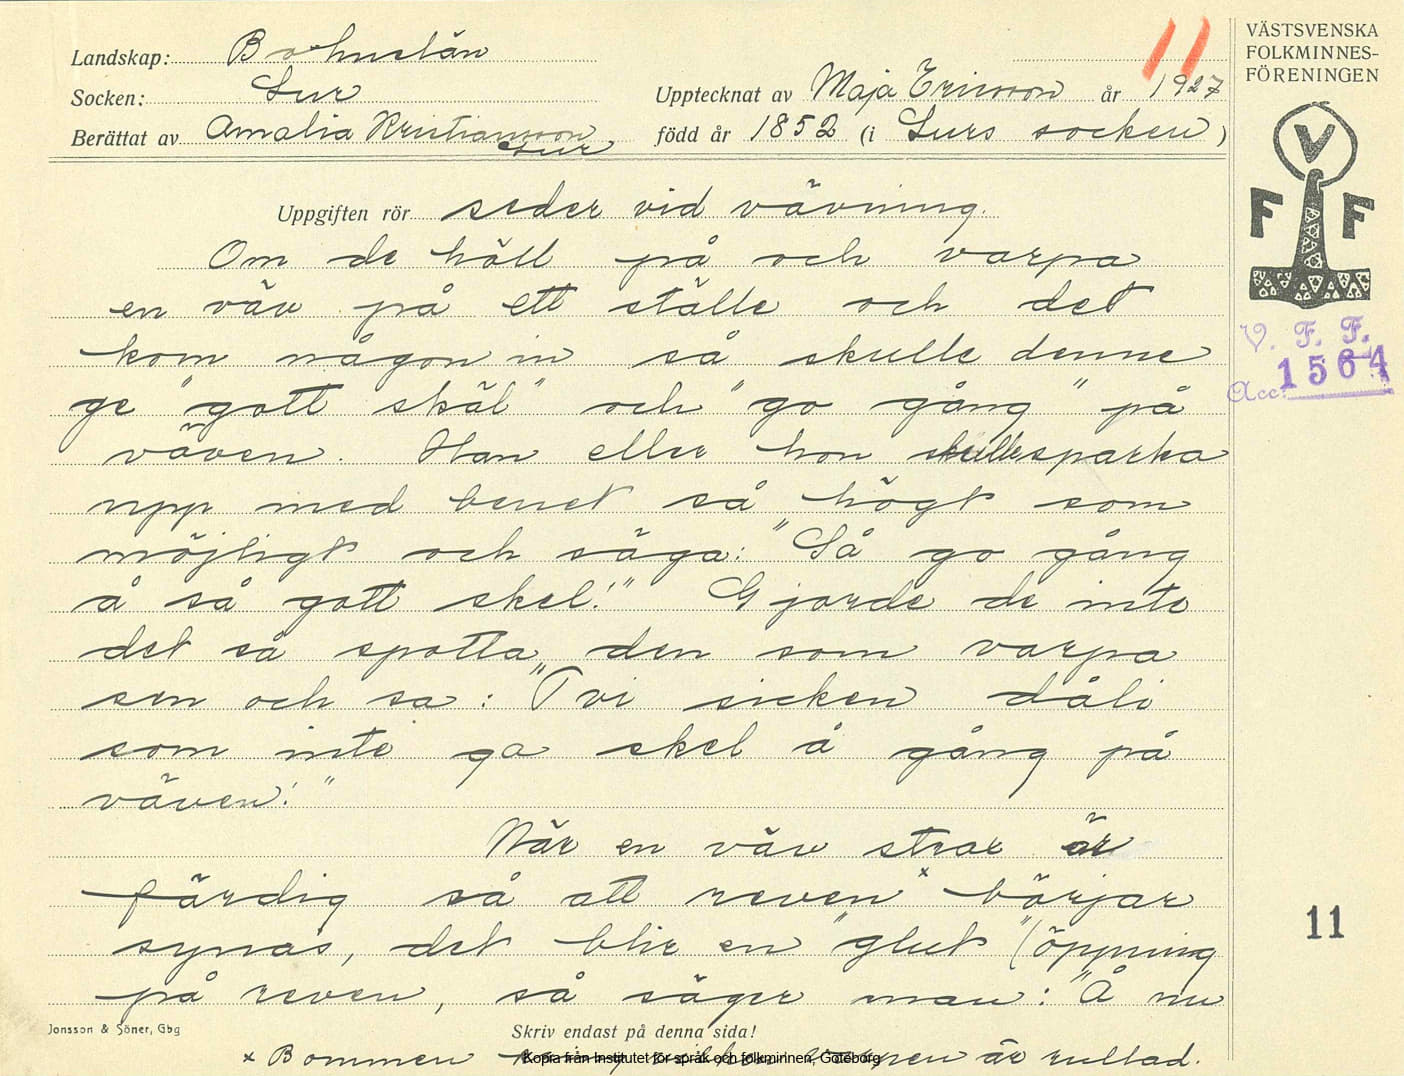 Landskap: Bohuslän
Socken: Lur
Berättat av Amalia Kristiansson
Lur
Upptecknat av Maja Ericsson år 1927
född år 1852 (i Lurs socken)
11
VÄSTSVENSKA
FOLKMINNES-
FÖRENINGEN
V
F F
V. F. F.
Acc. 1564
Uppgiften rör seder vid vävning.
Om de höll på och varpa
en väv på ett ställe och det
kom någon in så skulle denne
ge "gott skäl" och "go gång" på
väven. Han eller hon skulle sparka
upp med benet så högt som
möjligt och säga: "Så go gång
å så gott skel!" Gjorde de inte
det så spotta den som varpa
sen och sa: "Tvi sicken dåli
som inte ga skel å gång på
väven!"
När en väv strax är
färdig så att reven x börjar
synas, det blir en "glut" (öppning
på reven, så säger man: "Å nu
11
Jonsson & Söner, Gbg
Skriv endast på denna sida!
x Bommen varpen är rullad.
Kopia från Institutet för språk och folkminnen, Göteborg